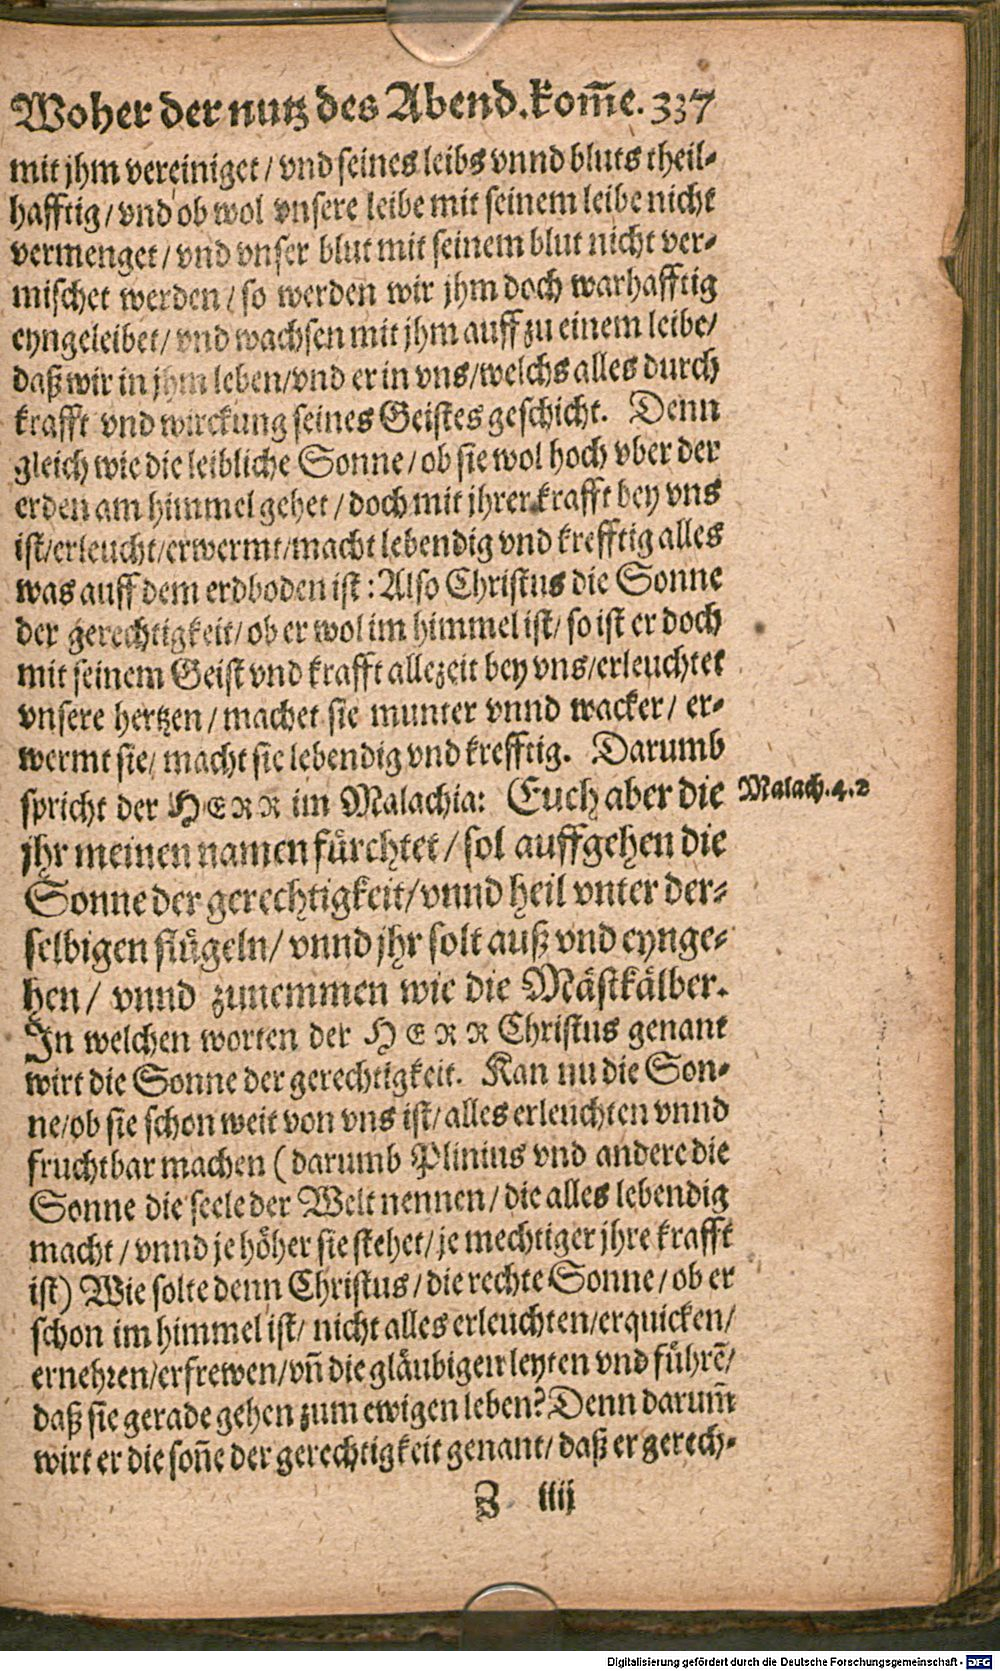 Woher der nutz des Abend. kom̃e. 337
mit jhm vereiniget / vnd seines leibs vnnd bluts theil-
hafftig / vnd ob wol vnsere leibe mit seinem leibe nicht
vermenget / vnd vnser blut mit seinem blut nicht ver-
mischet werden / so werden wir jhm doch warhafftig
eyngeleibet / vnd wachsen mit jhm auff zu einem leibe /
daß wir in jhm leben / vnd er in vns / welchs alles durch
krafft vnd wirckung seines Geistes geschicht. Denn
gleich wie die leibliche Sonne / ob sie wol hoch vber der
erden am himmel gehet / doch mit jhrer krafft bey vns
ist / erleucht / erwermt / macht lebendig vnd krefftig alles
was auff dem erdboden ist : Also Christus die Sonne
der gerechtigkeit / ob er wol im himmel ist / so ist er doch
mit seinem Geist vnd krafft allezeit bey vns / erleuchtet
vnsere hertzen / machet sie munter vnnd wacker / er-
wermt sie / macht sie lebendig vnd krefftig. Darumb
spricht der HERR im Malachia: Euch aber die
Malach. 4. 2
jhr meinen namen fürchtet / sol auffgehen die
Sonne der gerechtigkeit / vnnd heil vnter der-
selbigen flügeln / vnnd jhr solt auß vnd eynge-
hen / vnnd zunemmen wie die Mästkälber.
In welchen worten der HERR Christus genant
wirt die Sonne der gerechtigkeit. Kan nu die Son-
ne / ob sie schon weit von vns ist / alles erleuchten vnnd
fruchtbar machen (darumb Plinius vnd andere die
Sonne die seele der Welt nennen / die alles lebendig
macht / vnnd je höher sie stehet / je mechtiger jhre krafft
ist) Wie solte denn Christus / die rechte Sonne / ob er
schon im himmel ist / nicht alles erleuchten / erquicken /
ernehren / erfrewen / vñ die gläubigen leyten vnd führẽ /
daß sie gerade gehen zum ewigen leben? Denn darum̃
wirt er die soñe der gerechtigkeit genant / daß er gerech-
Z iiij
Digitalisierung gefördert durch die Deutsche Forschungsgemeinschaft - DFG